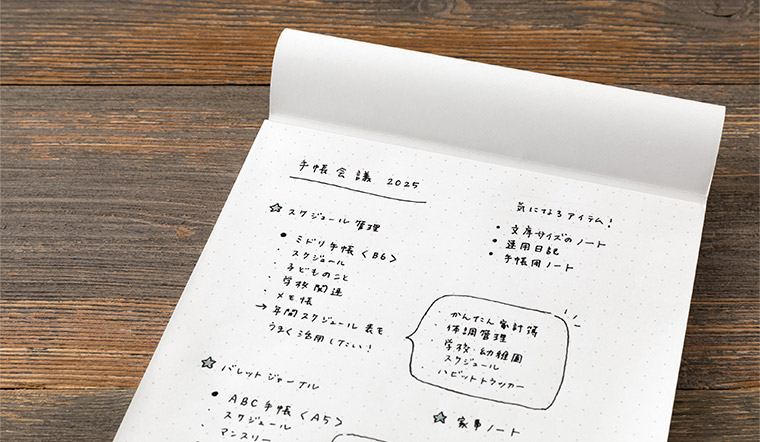 手帳会議 2025
☆スケジュール管理
● ミドリ手帳〈B6〉
・スケジュール
・子どものこと
・学校関連
・メモ帳
→ 年間スケジュール表を
うまく活用したい!
☆バレットジャーナル
● ABC手帳〈A5〉
・スケジュール
・マンスリー
気になるアイテム!
• 文庫サイズのノート
• 連用日記
• 手帳用ノート
・かんたん家計簿
・体調管理
・学校・幼稚園
スケジュール
・ハビットトラッカー
★ 家事ノート